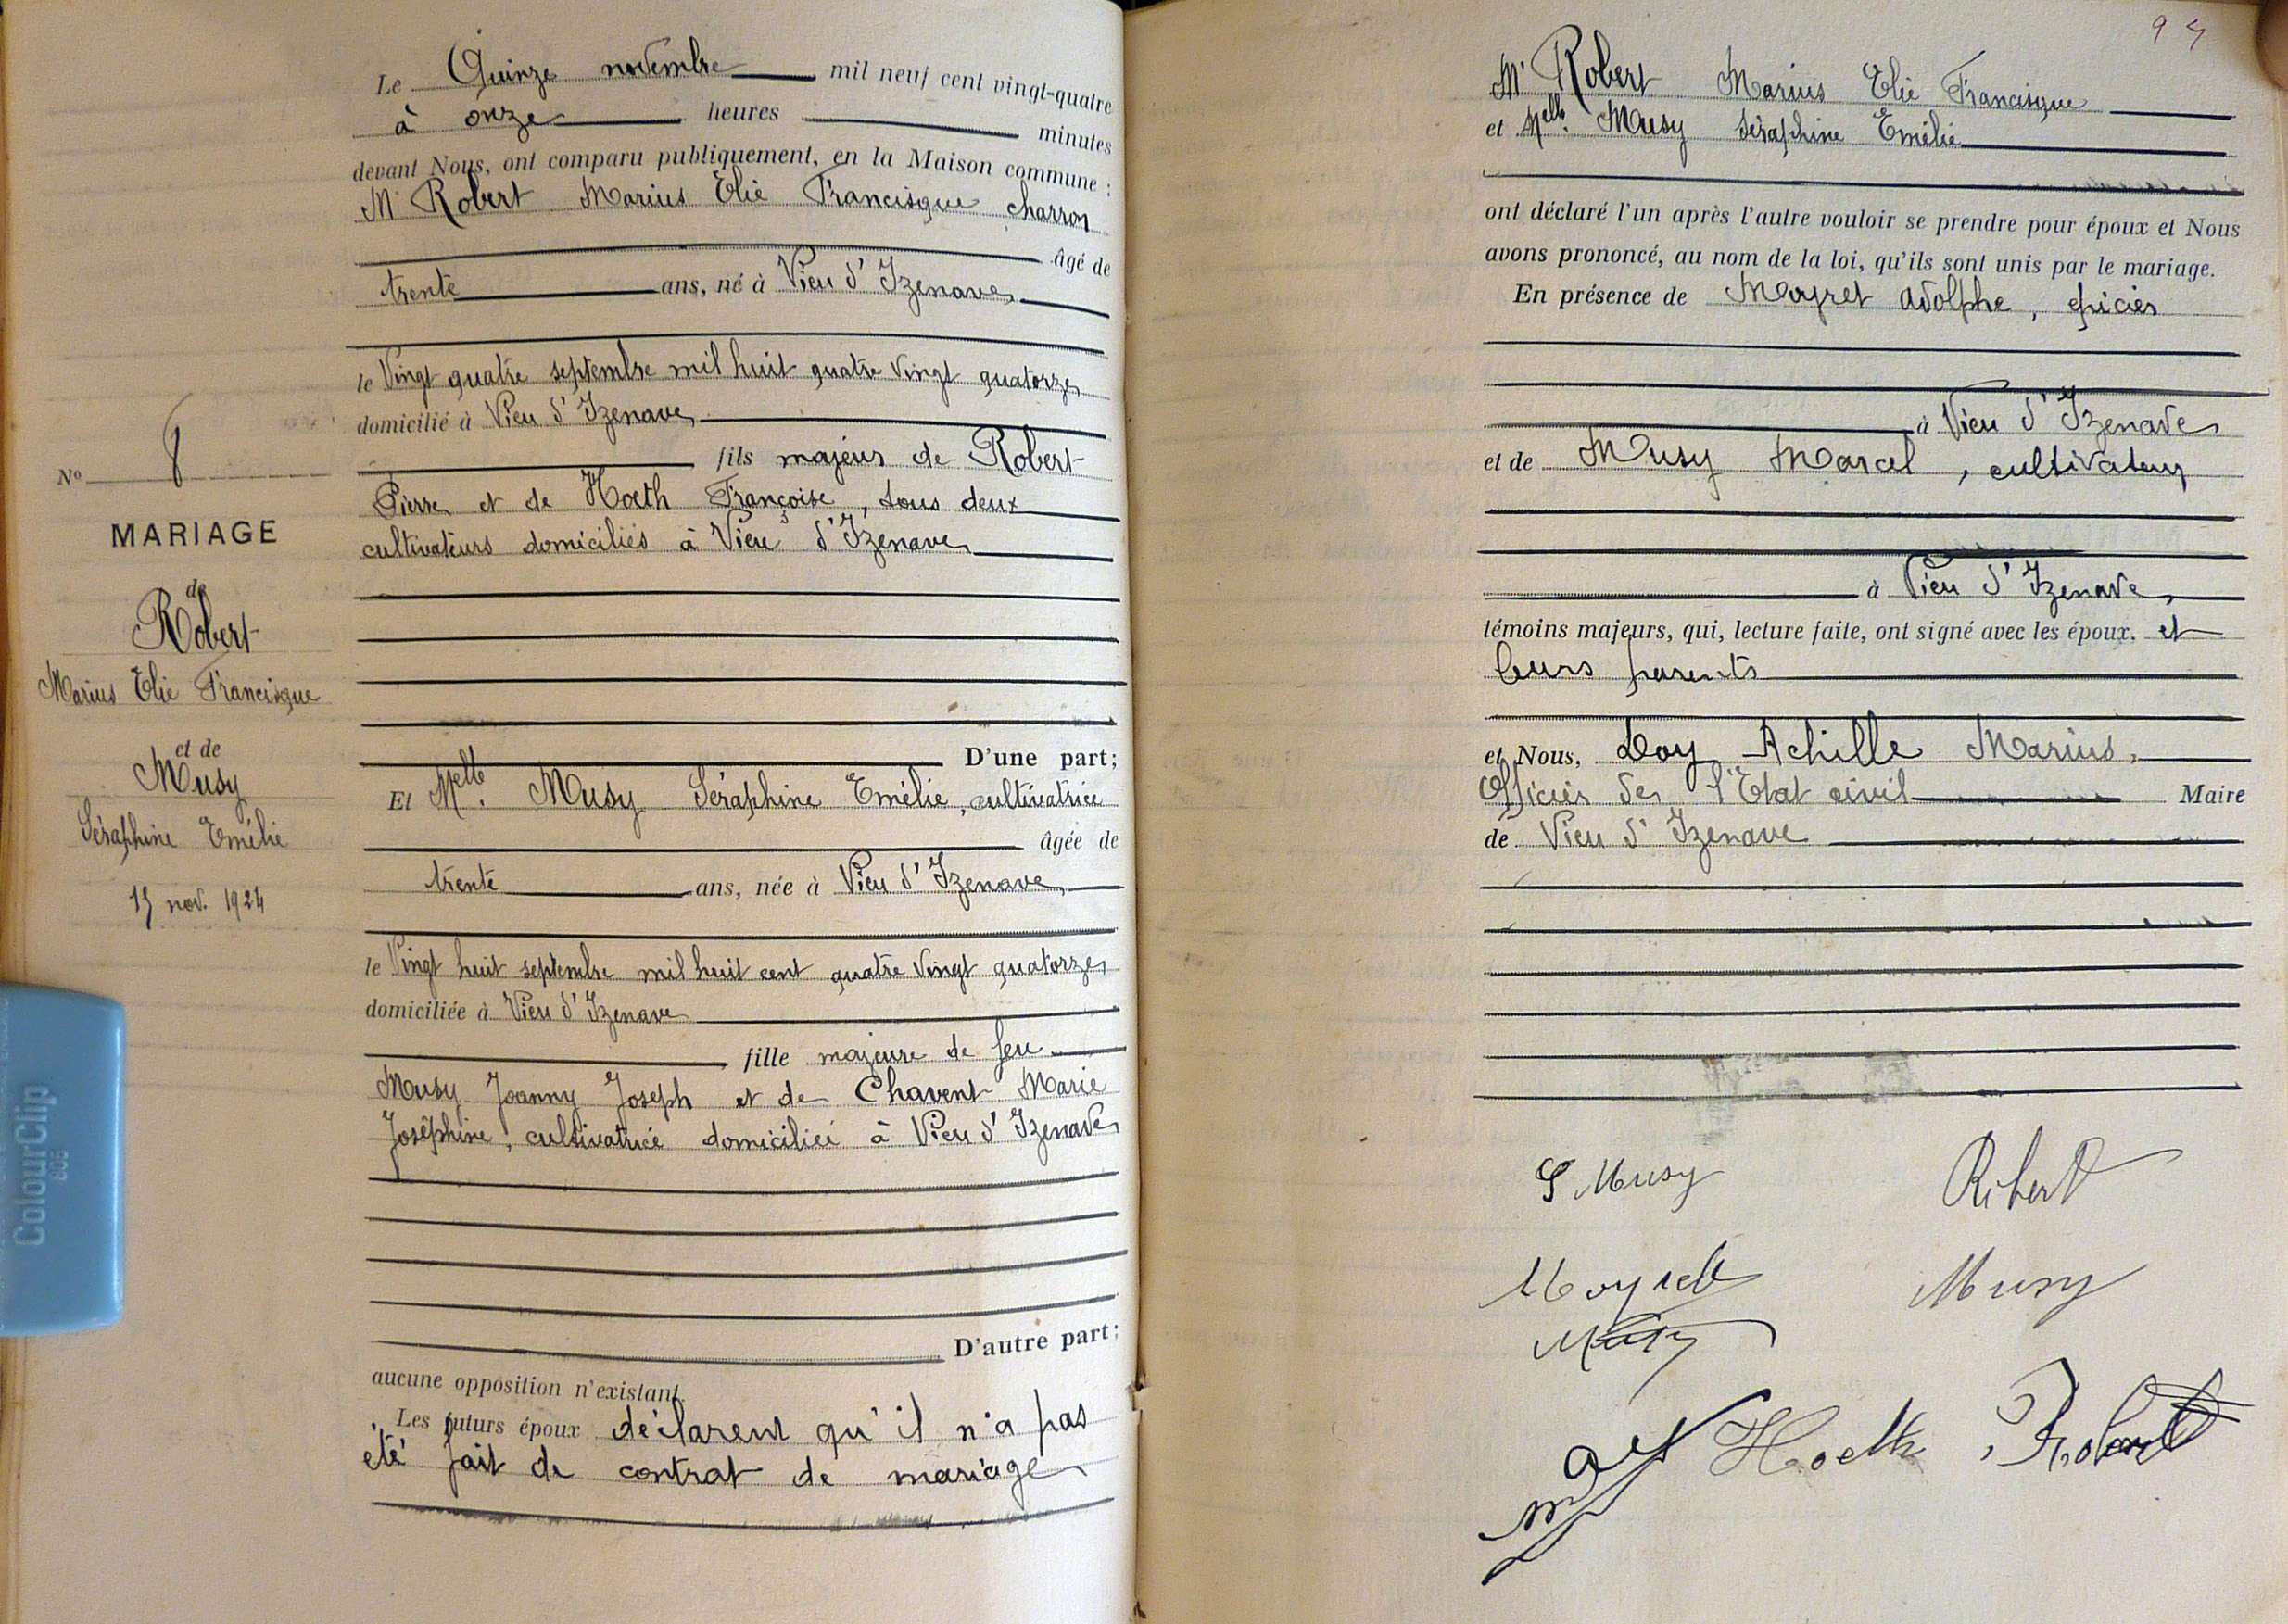 Nº 8
MARIAGE
de
Robert
Marius Elie Francisque
et de
Musy
Séraphine Emélie
15 nov. 1924
ColourClip
805
Le Quinze novembre mil neuf cent vingt-quatre
à onze heures minutes
devant Nous, ont comparu publiquement, en la Maison commune :
M Robert Marius Elie Francisque charron
âgé de
trente ans, né à Vieu d'Izenave
le Vingt quatre septembre mil huit quatre vingt quatorze
domicilié à Vieu d'Izenave
fils majeur de Robert
Pierre et de Hoeth Françoise, tous deux
cultivateurs domiciliés à Vieu d'Izenave
D'une part;
Et Melle. Musy Séraphine Emélie, cultivatrice
âgée de
trente ans, née à Vieu d'Izenave
le Vingt huit septembre mil huit cent quatre vingt quatorze
domiciliée à Vieu d'Izenave
fille majeure de feu
Musy Joanny Joseph et de Chavent Marie
Joséphine, cultivatrice domiciliée à Vieu d'Izenave
D'autre part;
aucune opposition n'existant.
Les futurs époux déclarent qu'il n'a pas
été fait de contrat de mariage
M Robert Marius Elie Francisque
et Melle. Musy Séraphine Emélie
ont déclaré l'un après l'autre vouloir se prendre pour époux et Nous
avons prononcé, au nom de la loi, qu'ils sont unis par le mariage.
En présence de Moyret Adolphe, épicier
à Vieu d'Izenave
et de Musy Marcel, cultivateur
à Vieu d'Izenave
témoins majeurs, qui, lecture faite, ont signé avec les époux. et
leurs parents
et Nous, Loy Achille Marius,
Officier de l'Etat civil Maire
de Vieu d'Izenave
S Musy Robert
Moyret Musy
Musy
Hoeth Robert